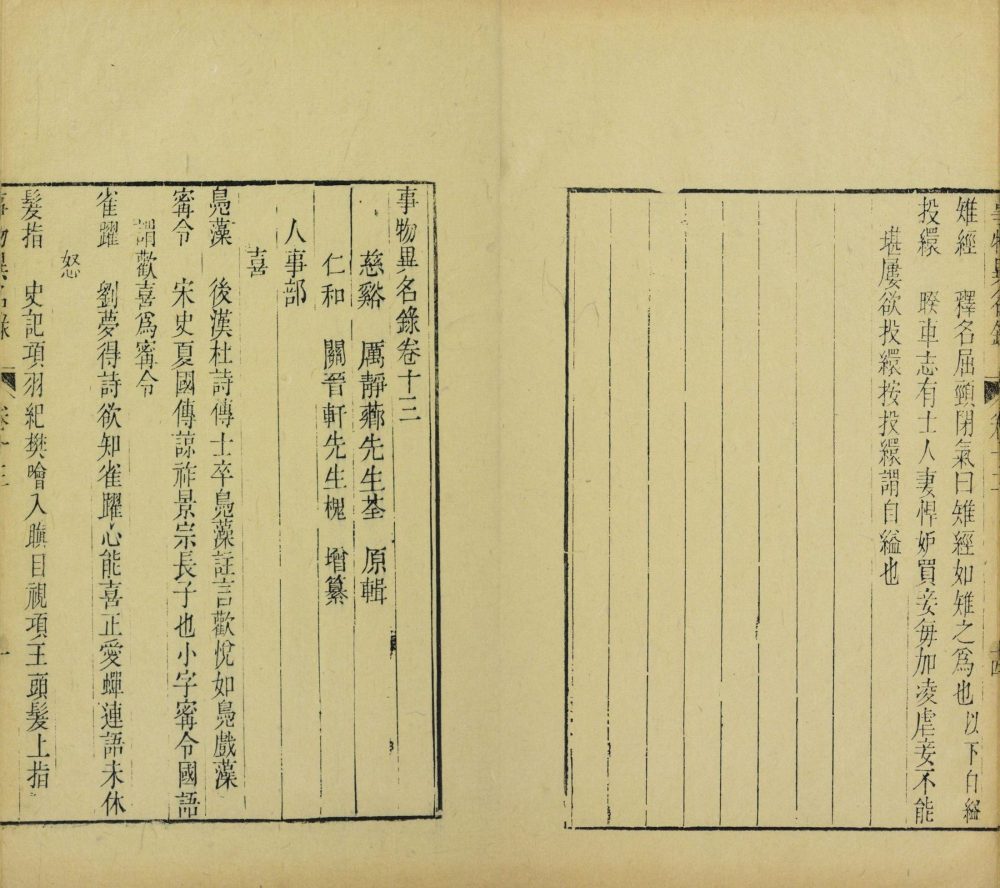 雉經　釋名屈頸閉氣曰雉經如雉之爲也以下自縊
投繯　睽車志有士人妻悍妒買妾每加凌虐妾不能
堪屢欲投繯按投繯謂自縊也
事物異名錄卷十三
慈谿　厲靜薌先生荃　原輯
仁和　關晉軒先生槐　增纂
人事部
喜
鳧藻　後漢杜詩傳士卒鳧藻註言歡悅如鳧戲藻
甯令　宋史夏國傳諒祚景宗長子也小字甯令國語
謂歡喜爲甯令
雀躍　劉夢得詩欲知雀躍心能喜正愛蟬連語未休
怒
髮指　史記項羽紀樊噲入瞋目視項王頭髮上指